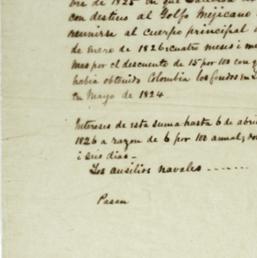 bre de 1825 en que
con destino al Golfo Mejicano
reunirse al cuerpo principal
de enero de 1826 cuatro meses i me
mes por el descuento de 15 por 100 con q
habia obtenido Colombia los fondos en
en Mayo de 1824
Intereses de esta suma hasta 6 de abri
1826 a razon de 6 por 100 annal; do
i seis dias_
Los ausilios navales
Pasan